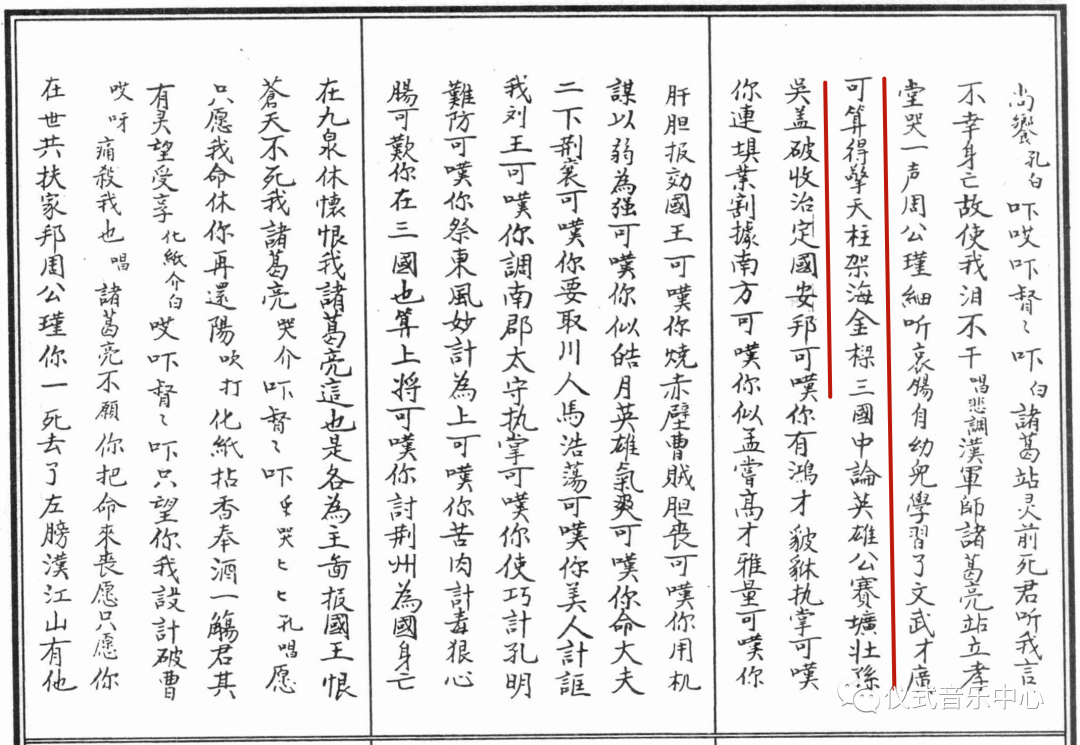 尚饗 孔白 吓哎吓督〻吓 白 諸葛站灵前死君听我言
不幸身亡故使我泪不干 唱悲調 漢軍師諸葛亮站立孝
堂哭一声周公瑾細听哀腸自幼兒學習了文武才廣
可算得擎天柱架海金樑三國中論英雄公賽壙壯孫
吳盖破收治定國安邦可嘆你有鴻才貔貅执掌可嘆
你連埧業割據南方可嘆你似孟嘗高才雅量可嘆你
肝胆报効國王可嘆你燒赤壁曹賊胆丧可嘆你用机
謀以弱為强可嘆你似皓月英雄氣爽可嘆你命大夫
二下荆襄可嘆你要取川人馬浩蕩可嘆你美人計誆
我刘王可嘆你調南郡太守执掌可嘆你使巧計孔明
難防可嘆你祭東風妙計為上可嘆你苦肉計毒狠心
腸可歎你在三國也算上將可嘆你討荆州為國身亡
在九泉休懷恨我諸葛亮這也是各為主啚报國王恨
蒼天不死我諸葛亮 哭介 吓督〻吓 哭 孔唱 愿
只愿我命休你再還陽 吹打 化紙拈香奉酒一觴君其
有灵望受享 化紙介白 哎吓督〻吓只望你我設計破曹
哎呀痛殺我也 唱 諸葛亮不願你把命來丧愿只愿你
在世共扶家邦周公瑾你一死去了左膀漢江山有他
仪式音乐中心